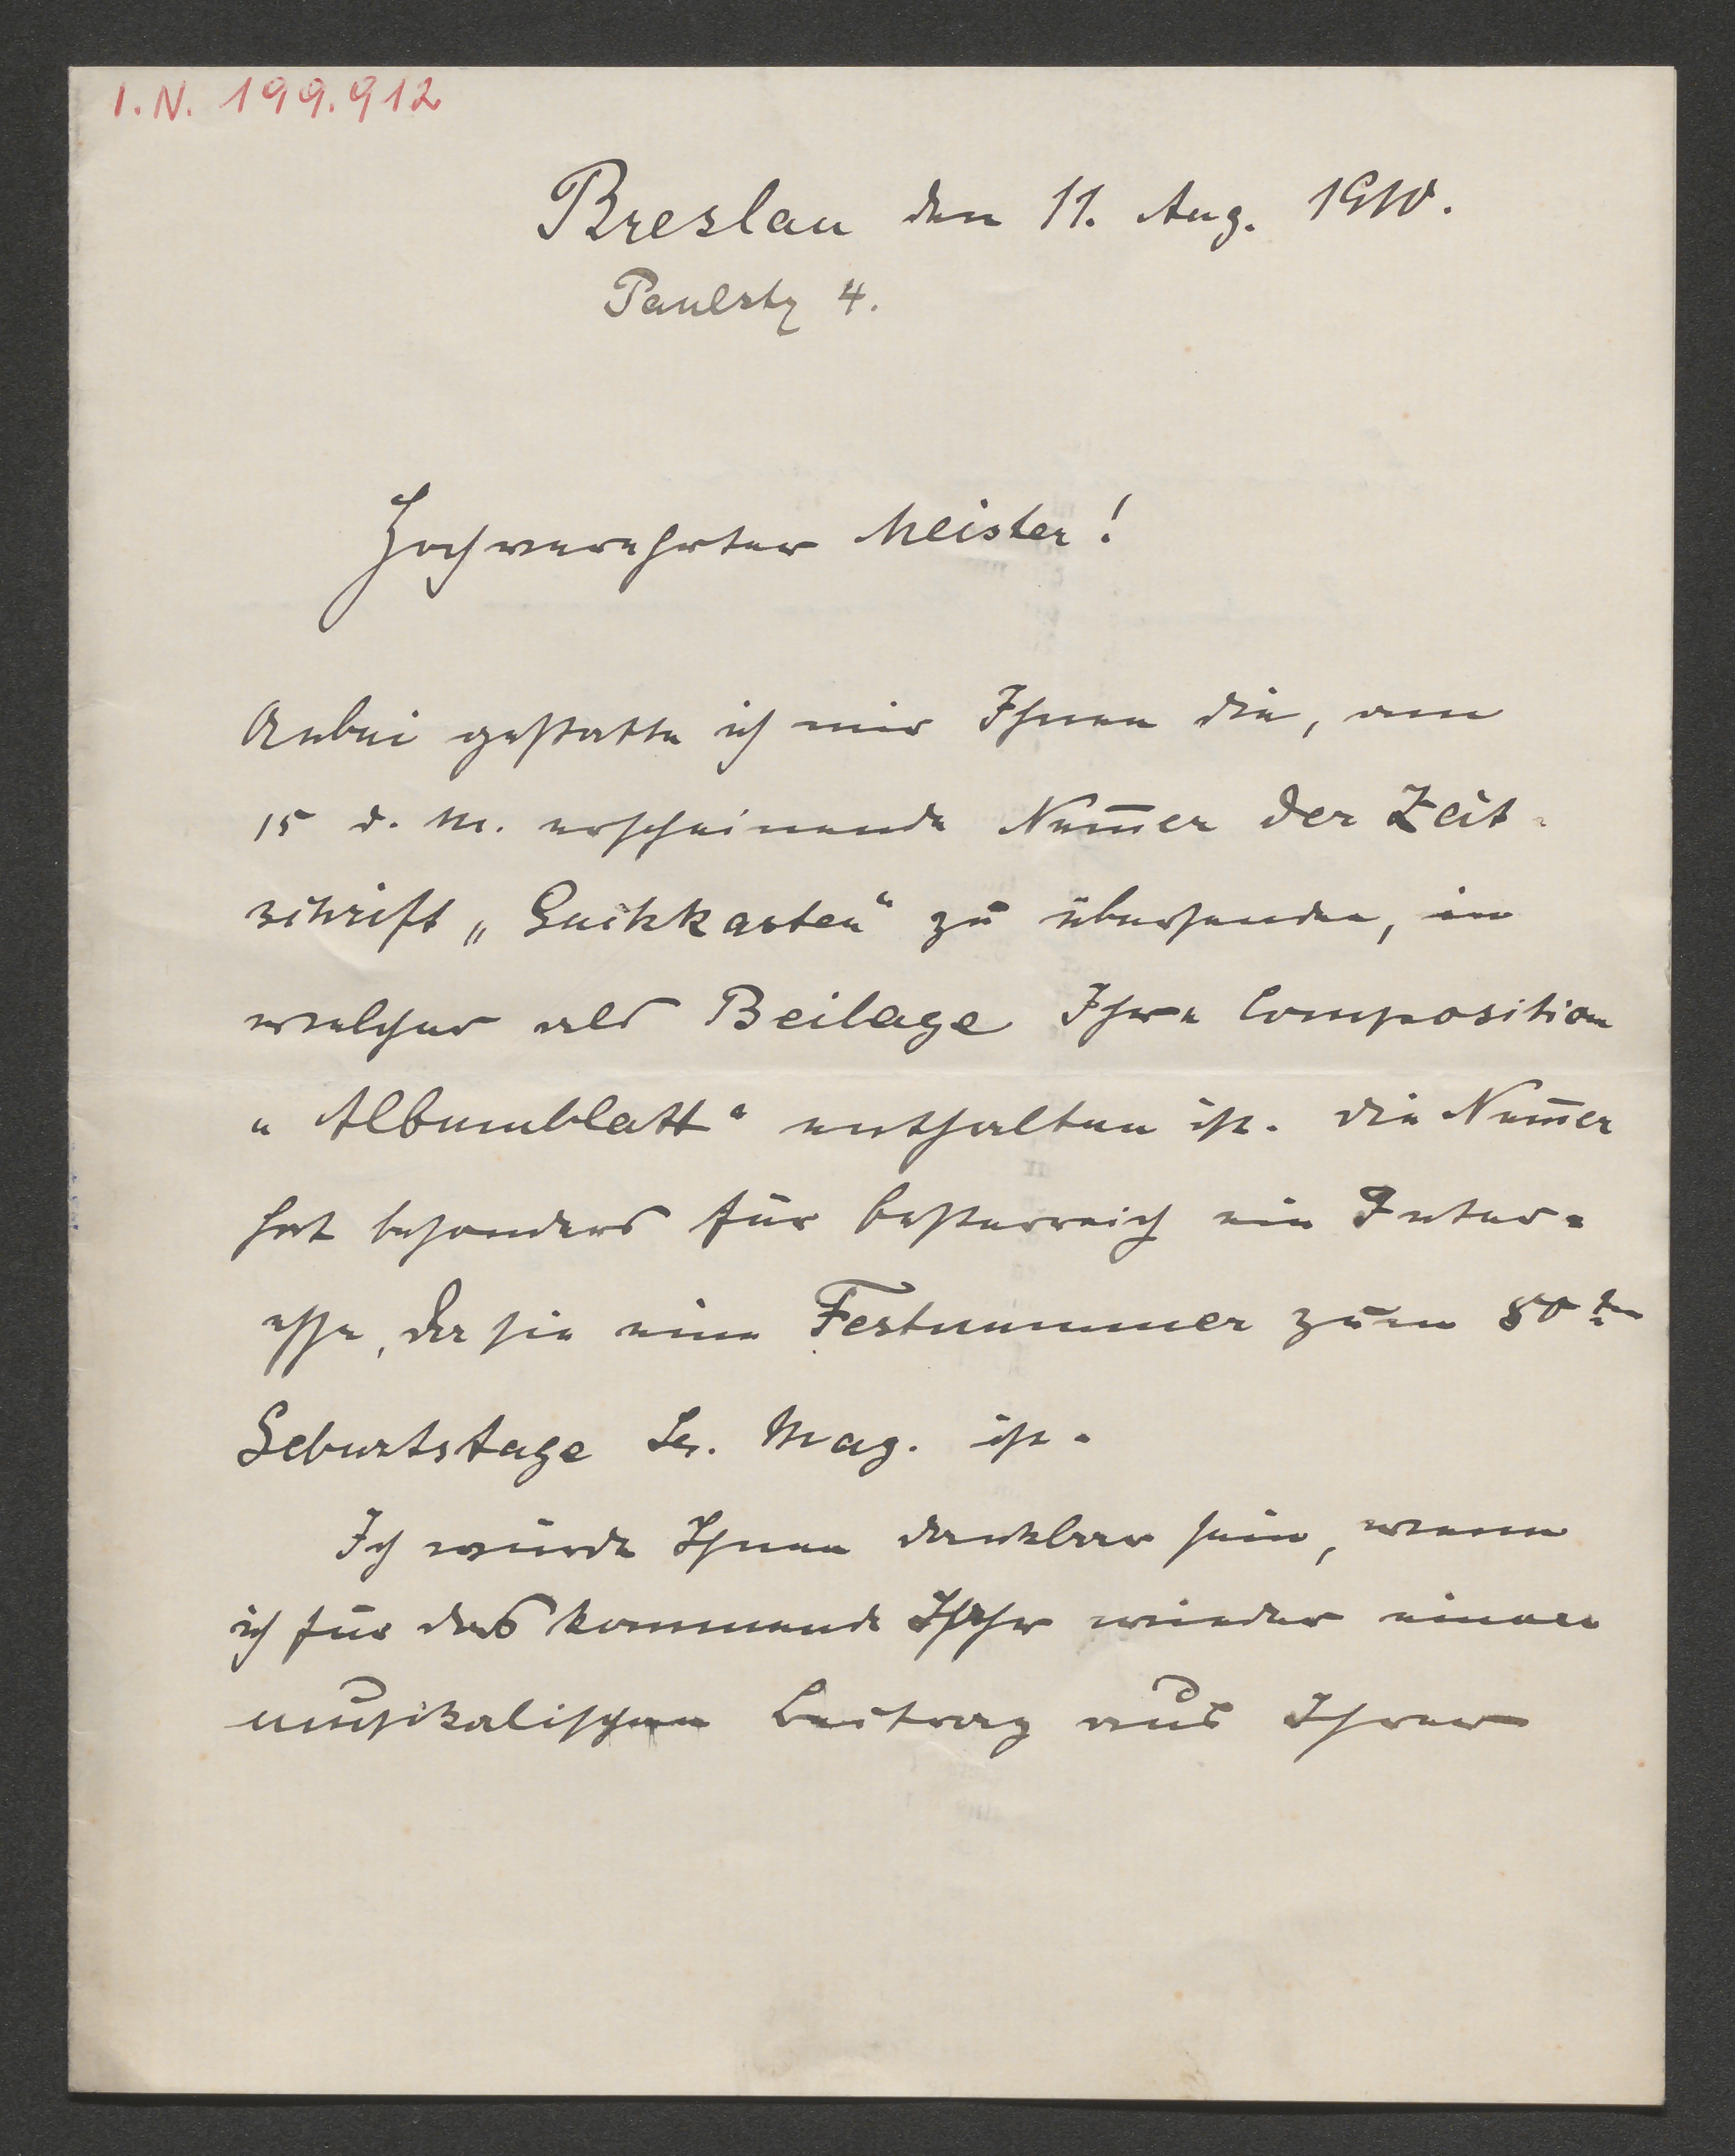 I.N. 199.912
Breslau den 11. Aug. 1910.
Paulstr 4.
Hochverehrter Meister!
Anbei gestatte ich mir Ihnen die, am
15 d. M. erscheinende Num̅er der Zeit-
schrift „Guckkasten“ zu übersenden, in
welcher als Beilage Ihre Composition
„Albumblatt“ enthalten ist. Die Num̅er
hat besonders für Oesterreich ein Inter=
esse, da sie eine Festnummer zum 80ten
Geburtstage Sr. Maj. ist.
Ich würde Ihnen dankbar sein, wenn
ich für das kommende Jahr wieder einen
musikalischen Beitrag aus Ihrer